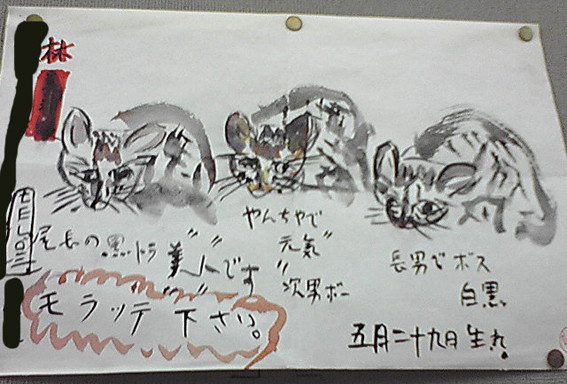 林
TEL 031
尾長の黒トラ
"美人"です
やんちゃで
元気"
次男ボー
長男でボス
白黒
五月二十九日生れ。
モラッテ下さい。